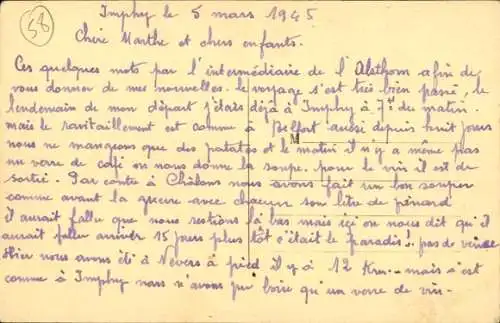 58
Imphy le 5 mars 1945
Chère Marthe et chers enfants.
Ces quelques mots par l'intermédiaire de l'Alsthom afin de
vous donner de mes nouvelles. le voyage s'est très bien passé, le
lendemain de mon départ j'étais déjà à Imphy à 7h du matin.
mais le ravitaillement est comme à Belfort aussi depuis huit jours
nous ne mangeons que des patates et le matin il n y a même pas
un verre de café on nous donne la soupe. pour le vin il est de
sortie. Par contre à Châlons nous avons fait un bon souper
comme avant la guerre avec chacun son litre de pinard
il aurait fallu que nous restions là bas mais ici on nous dit qu'il
aurait fallu arriver 15 jours plus tôt c'était le paradis. pas de veine
Hier nous avons été à Nevers à pied il y à 12 Km. mais s'est
comme à Imphy nous n'avons pu boire qu'un verre de vin.